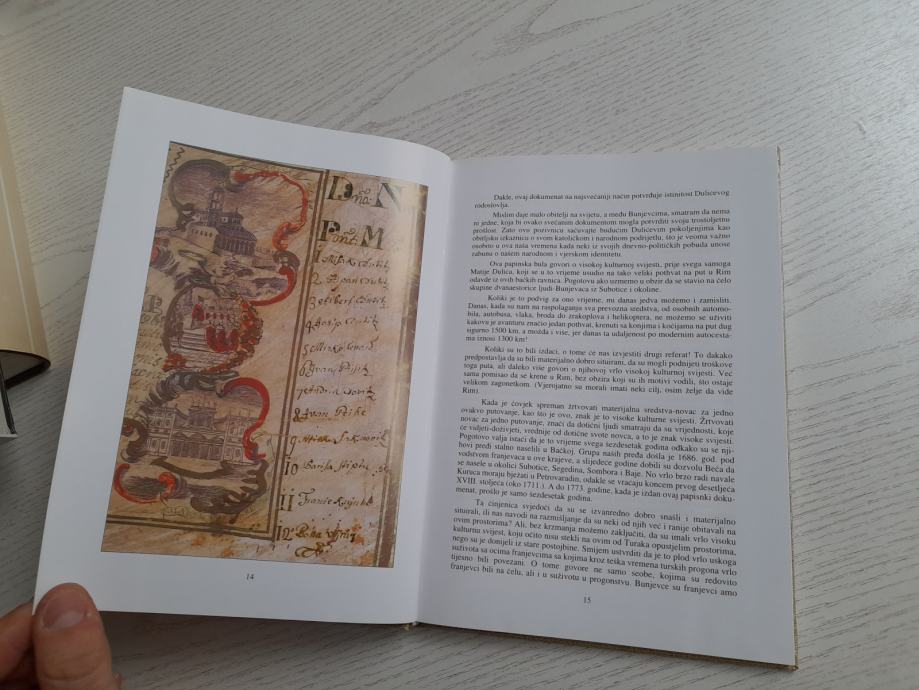 Dña: N
Pont: M
1
2
3
4
5
6
7
8
9
10
11
12
14
Dakle, ovaj dokumenat na najsvečaniji način potvrđuje istinitost Dulićevog
rodoslovlja.
Mislim daje malo obitelji na svijetu, a među Bunjevcima, smatram da nema
ni jedne, koja bi ovako svečanim dokumentom mogla potvrditi svoju trostoljetnu
prošlost. Zato ovu pozivnicu sačuvajte budućim Dulićevim pokoljenjima kao
obiteljsku iskaznicu o svom katoličkom i narodnom podrijetlu, što je veoma važno
osobito u ova naša vremena kada neki iz svojih dnevno-političkih pobuda unose
zabunu o našem narodnom i vjerskom identitetu.
Ova papinska bula govori o visokoj kulturnoj svijesti, prije svega samoga
Matije Dulića, koji se u to vrijeme usudio na tako veliki pothvat na put u Rim
odavde iz ovih bačkih ravnica. Pogotovu ako uzmemo u obzir da se stavio na čelo
skupine dvanaestorice ljudi-Bunjevaca iz Subotice i okoline.
Koliki je to podvig za ono vrijeme, mi danas jedva možemo i zamisliti.
Danas, kada su nam na raspolaganju sva prevozna sredstva, od osobnih automo-
bila, autobusa, vlaka, broda do zrakoplova i helikoptera, ne možemo se uživiti
kakova je avanturu značio jedan pothvat, krenuti sa konjima i kočijama na put dug
sigurno 1500 km, a možda i više, jer danas ta udaljenost po modernim autocesta-
ma iznosi 1300 km!
Koliki su to bili izdaci, o tome će nas izvjestiti drugi referat! To dakako
predpostavlja da su bili materijalno dobro situirani, da su mogli podnijeti troškove
toga puta, ali daleko više govori o njihovoj vrlo visokoj kulturnoj svijesti. Već
sama pomisao da se krene u Rim, bez obzira koji su ih motivi vodili, što ostaje
velikom zagonetkom. (Vjerojatno su morali imati neki cilj, osim želje da vide
Rim).
Kada je čovjek spreman žrtvovati materijalna sredstva-novac za jedno
ovakvo putovanje, kao što je ovo, znak je to visoke kulturne svijesti. Žrtvovati
novac za jedno putovanje, znači da dotični ljudi smatraju da su vrijednosti, koje
će vidjeti-doživjeti, vrednije od dotične svote novca, a to je znak visoke svijesti.
Pogotovo valja istaći da je to vrijeme svega šezdesetak godina odkako su se nji-
hovi preci stalno naselili u Bačkoj. Grupa naših pređa došla je 1686. god. pod
vodstvom franjevaca u ove krajeve, a slijedeće godine dobili su dozvolu Beča da
se nasele u okolici Subotice, Segedina, Sombora i Baje. No vrlo brzo radi navale
Kuruca moraju bježati u Petrovaradin, odakle se vraćaju koncem prvog desetljeća
XVIII. stoljeća (oko 1711.). A do 1773. godine, kada je izdan ovaj papinski doku-
menat, prošlo je samo šezdesetak godina.
Ta činjenica svjedoči da su se izvanredno dobro snašli i materijalno
situirali, ili nas navodi na razmišljanje da su neki od njih već i ranije obitavali na
ovim prostorima? Ali, bez krzmanja možemo zaključiti, da su imali vrlo visoku
kulturnu svijest, koju očito nisu stekli na ovim od Turaka opustjelim prostorima,
nego su je donijeli iz stare postojbine. Smijem ustvrditi da je to plod vrlo uskoga
suživota sa ocima franjevcima sa kojima kroz teška vremena turskih progona vrlo
tijesno bili povezani. O tome govore ne samo seobe, kojima su redovito
franjevci bili na čelu, ali i u suživotu u progonstvu. Bunjevce su franjevci amo
15